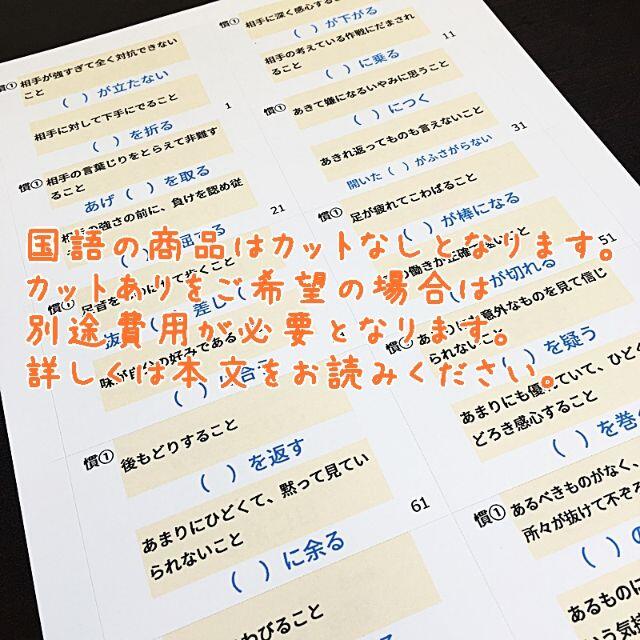 慣①相手が強すぎて全く対抗できない
こと
(　)が立たない
相手に対して下手にでること
1
(　)を折る
慣①相手の言葉じりをとらえて非難す
ること
あげ(　)を取る
相手の強さの前に、負けを認め従
21
屈する
慣①
足音を
抜
差し
味が自分の好みである
慣①後もどりすること
(　)を返す
あまりにひどくて、黙って見てい
られないこと
61
(　)に余る
わびること
慣①相手に深く感心する
(　)が下がる
相手の考えている作戦にだまされ
ること
11
(　)に乗る
慣①あきて嫌になるいやみに思うこと
(　)につく
あきれ返ってものも言えないこと
31
開いた(　)がふさがらない
慣①足が疲れてこわばること
(　)が棒になる
働きが正確
51
が切れる
慣①
意外なものを見て信じ
られないこと
(　)を疑う
あまりにも優れていて、ひどく
どろき感心すること
(　)を巻
慣①あるべきものがなく、
所々が抜けて不ぞろ
(　)の
あるものに
いう気持
国語の商品はカットなしとなります。
カットありをご希望の場合は
別途費用が必要となります。
詳しくは本文をお読みください。